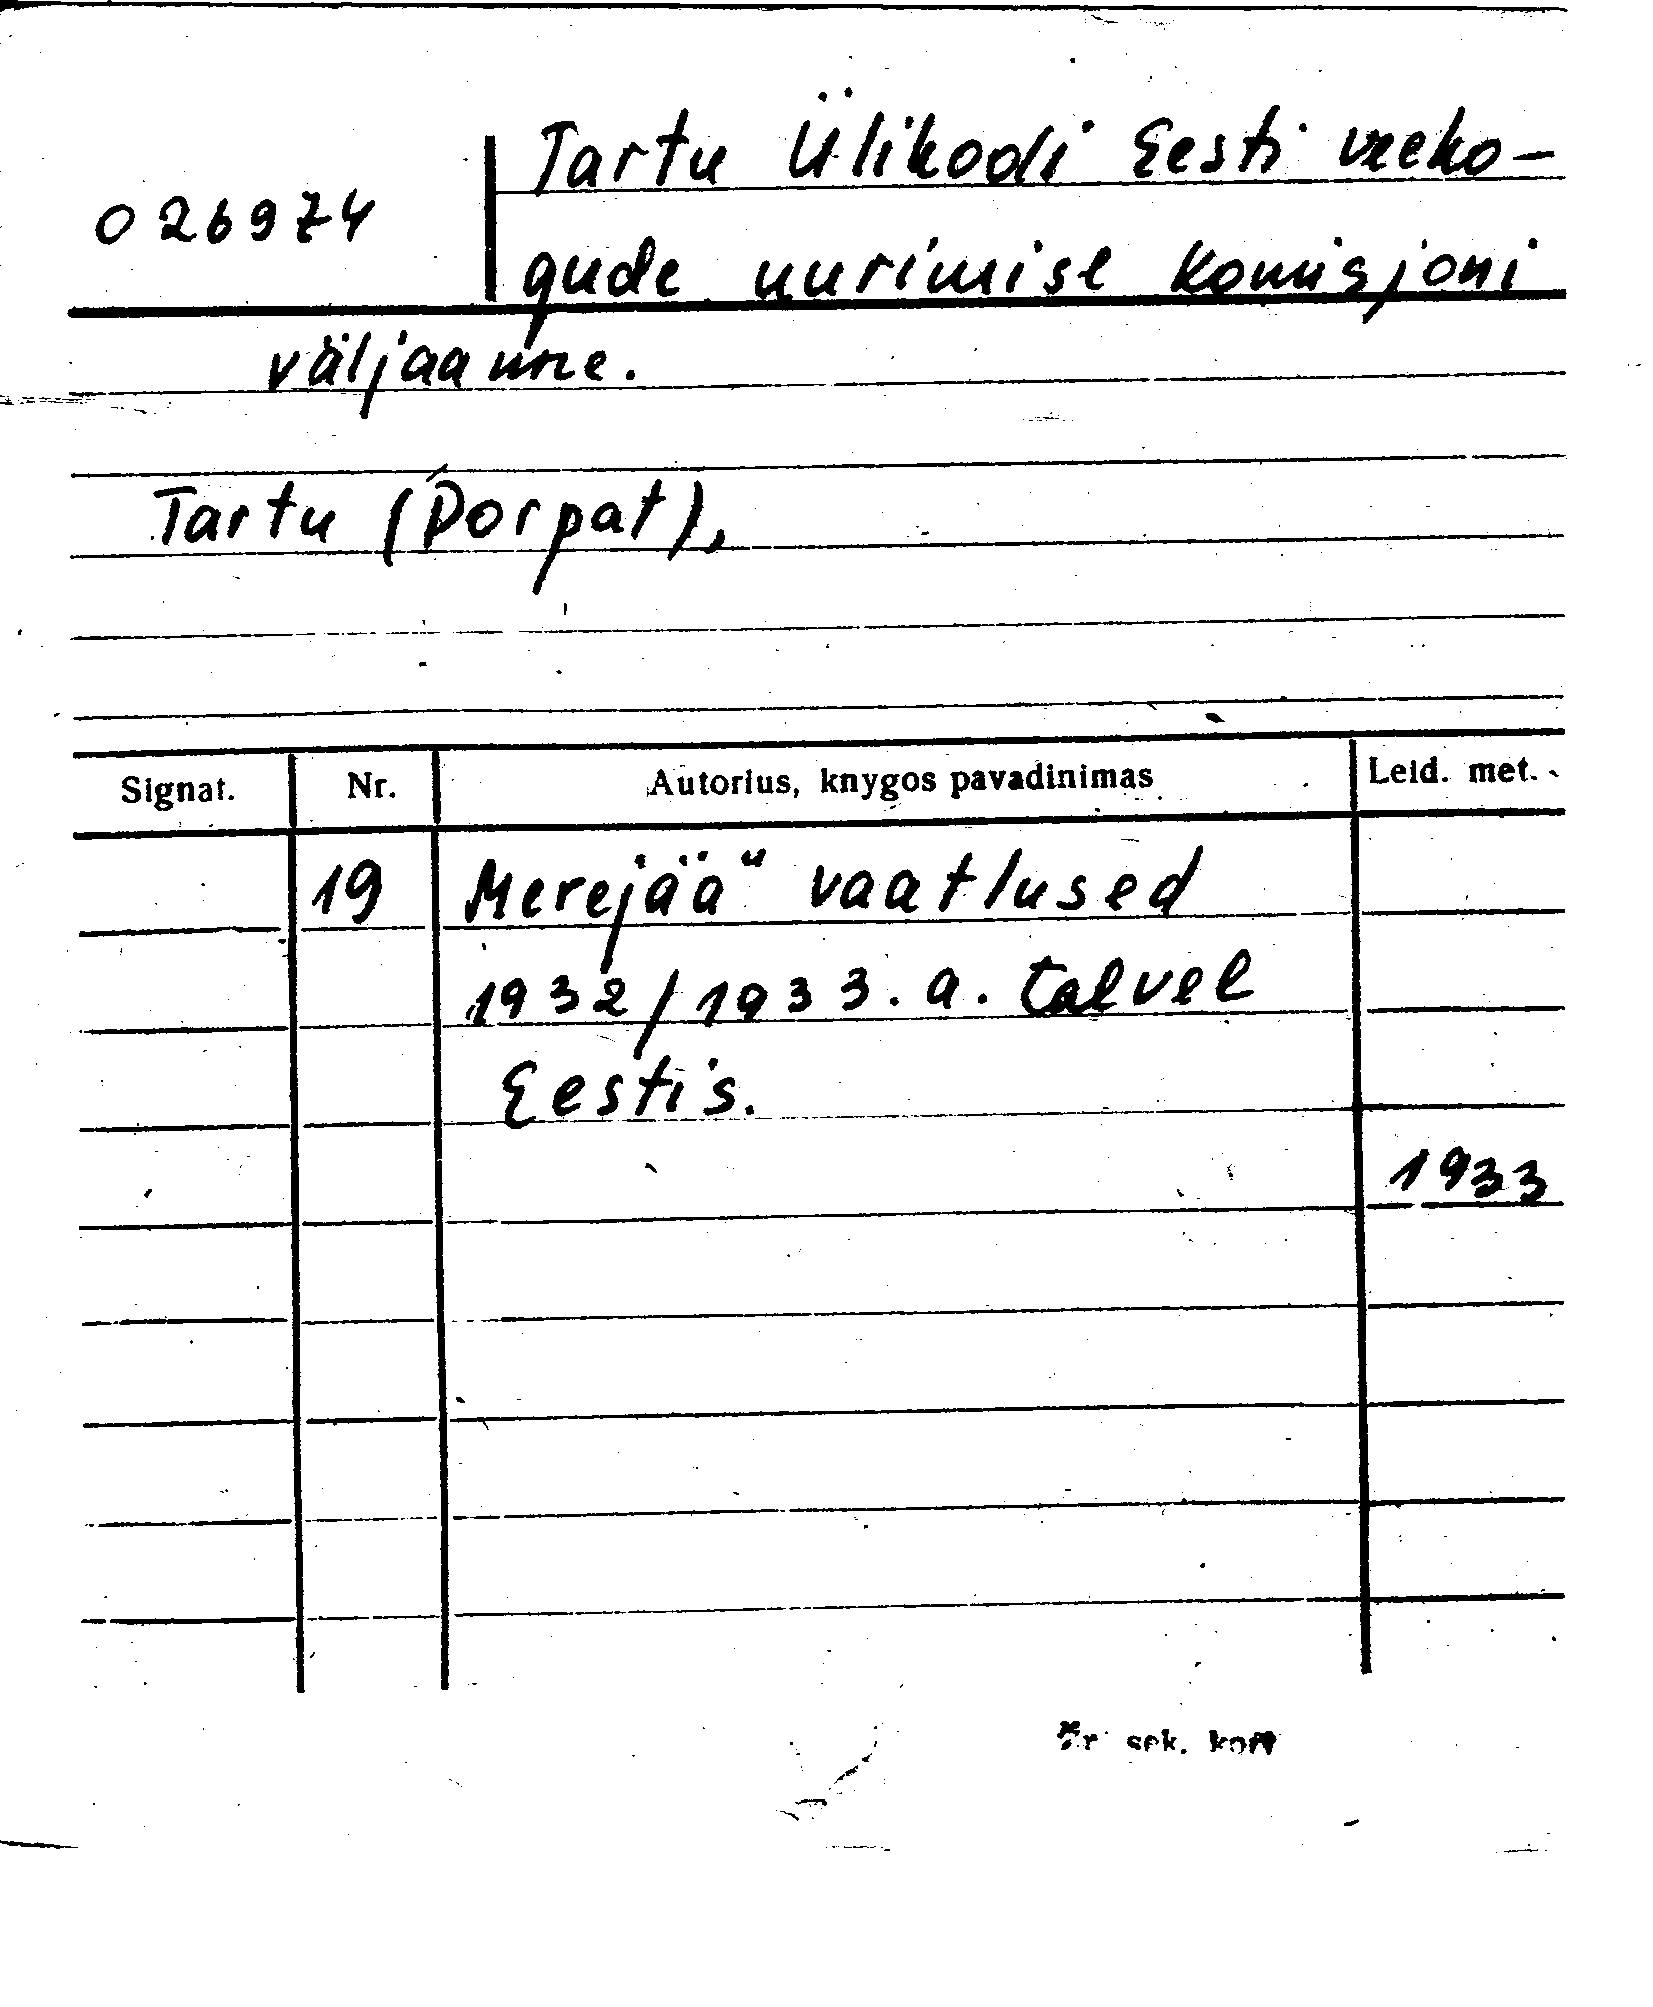 Tartu Ülikooli Eesti veeko-
026974
gude uurimise komisjoni
väljaanne.
Tartu (Dorpat),
Signat. Nr. Autorius, knygos pavadinimas Leid. met.
19 Merejää" vaatlused
1932/1933. a. talvel
Eestis.
1933
sek. kort